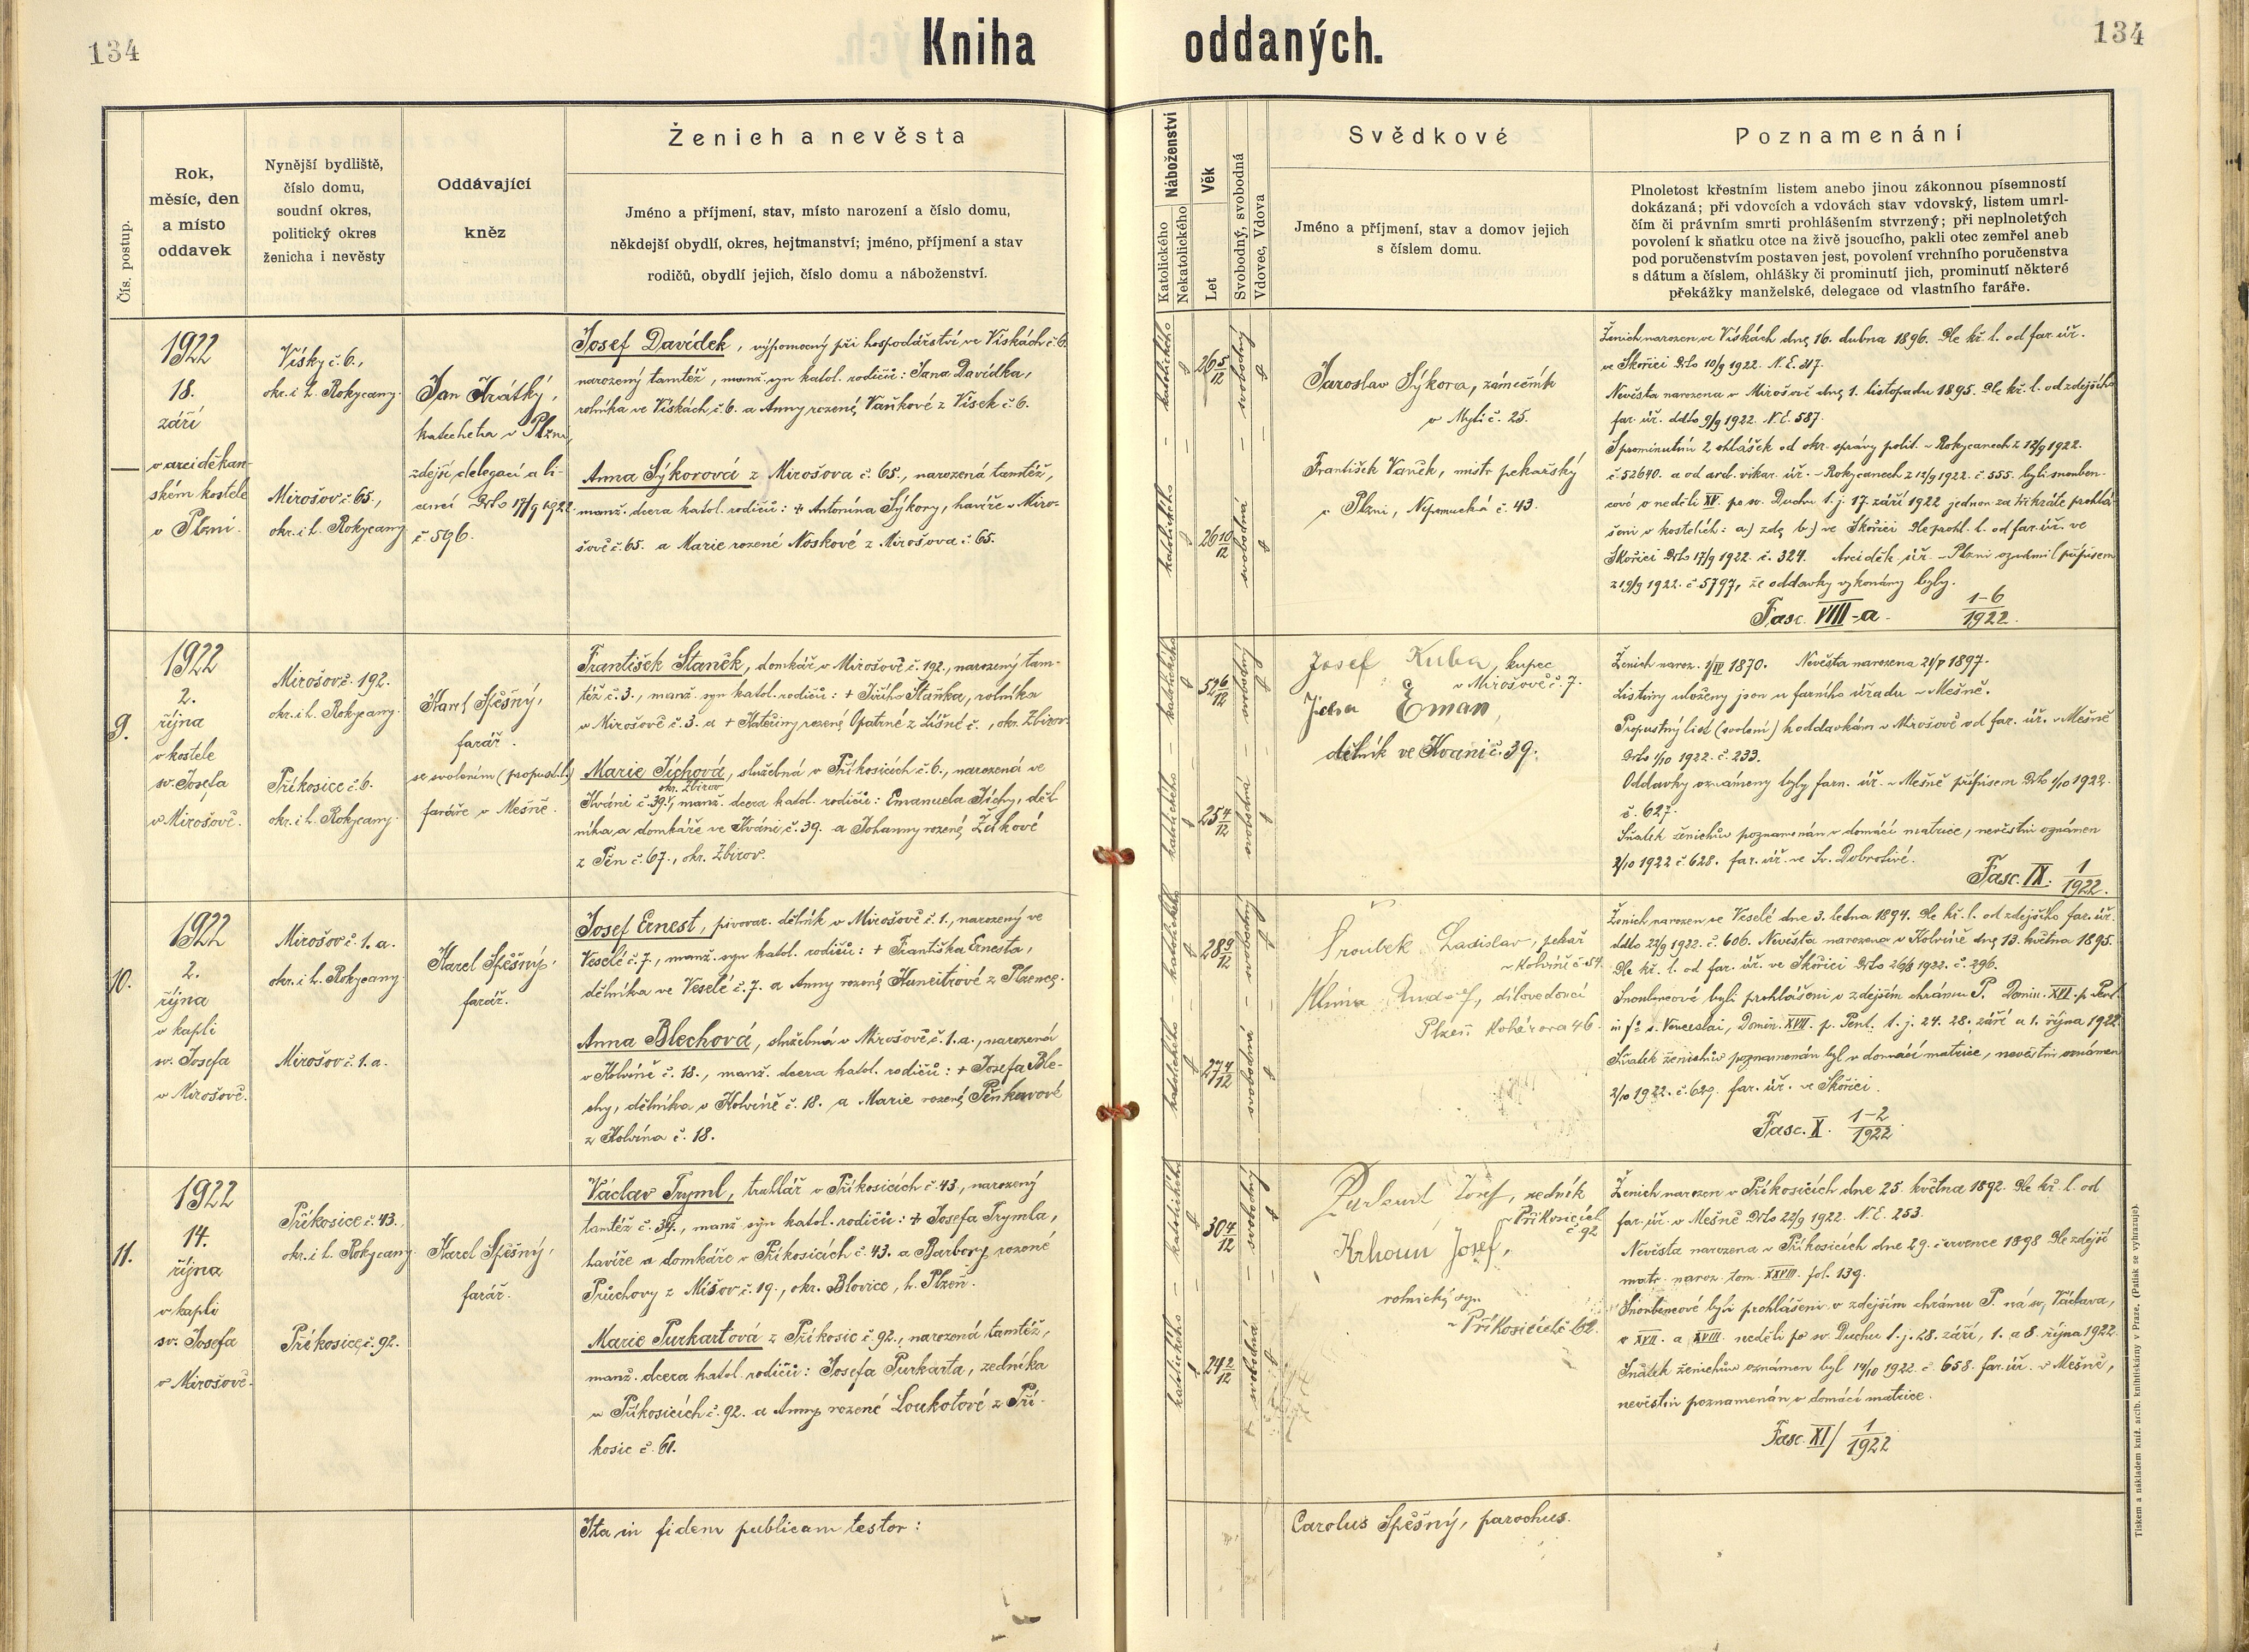 134
Kniha
oddaných.
134
Čís. postup.
Rok,
měsíc, den
a místo
oddavek
Nynější bydliště,
číslo domu,
soudní okres,
politický okres
ženicha i nevěsty
Oddávající
kněz
Ženich a nevěsta
Jméno a příjmení, stav, místo narození a číslo domu,
někdejší obydlí, okres, hejtmanství; jméno, příjmení a stav
rodičů, obydlí jejich, číslo domu a náboženství.
Náboženství
Katolického
Nekatolického
Věk
Let
Svobodný, svobodná
Vdovec, Vdova
Svědkové
Jméno a příjmení, stav a domov jejich
s číslem domu.
Poznamenání
Plnoletost křestním listem anebo jinou zákonnou písemností
dokázaná; při vdovcích a vdovách stav vdovský, listem umrl-
čím či právním smrti prohlášením stvrzený; při neplnoletých
povolení k sňatku otce na živě jsoucího, pakli otec zemřel aneb
pod poručenstvím postaven jest, povolení vrchního poručenstva
s dátum a číslem, ohlášky či prominutí jich, prominutí některé
překážky manželské, delegace od vlastního faráře.
1922
18.
září
v arciděkan-
ském kostele
v Plzni.
Vísky č. 6.,
okr. i h. Rokycany.
Mirošov č. 65.,
okr. i h. Rokycany
Jan Krátký,
katecheta v Plzni,
zdejší delegací a li-
cencí Dto 17/9 1922
č. 596.
Josef Davídek, výpomocný při hospodářství ve Vískách č. 6.
narozený tamtéž, manž. syn katol. rodičů: Jana Davídka,
rolníka ve Vískách č. 6. a Anny rozené Vaňkové z Vísek č. 6.
Anna Sýkorová z Mirošova č. 65., narozená tamtéž,
manž. dcera katol. rodičů: + Antonína Sýkory, havíře v Miro-
šově č. 65. a Marie rozené Noskové z Mirošova č. 65.
katolického
26 5/12
svobodný
katolického
26 10/12
svobodná
Jaroslav Sýkora, zámečník
v Mýtě č. 25.
František Vaněk, mistr pekařský
v Plzni, Nepomucká č. 43.
Ženich narozen ve Vískách dne 16. dubna 1896. Dle kř. l. od far. úř.
ve Skořici Dto 10/9 1922. N. E. 317.
Nevěsta narozena v Mirošově dne 1. listopadu 1895. Dle kř. l. od zdejšího
far. úř. ddto 9/9 1922. N. E. 587.
S prominutím 2 ohlášek od okr. správy polit. v Rokycanech z 12/9 1922.
č. 52640. a od arcib. vikar. úř. v Rokycanech z 12/9 1922. č. 555. byli snouben-
cové v neděli XV. po sv. Duchu t. j. 17. září 1922 jednou za třikráte prohlá-
šeni v kostelích: a.) zde b.) ve Skořici Dle prohl. l. od far. úř. ve
Skořici Dto 17/9 1922. č. 324. Arciděk. úř. v Plzni oznámil přípisem
z 19/9 1922. č. 5797, že oddavky vykonány byly.
Fasc. VIII-a. 1-6/1922.
9.
1922
2.
října
v kostele
sv. Josefa
v Mirošově.
Mirošov č. 192.
okr. i h. Rokycany.
Příkosice č. 6.
okr. i h. Rokycany.
Karel Spěšný,
farář.
se svolením (propust. l.)
faráře v Mešně.
František Staněk, domkář v Mirošově č. 192., narozený tam-
též č. 3., manž. syn katol. rodičů: + Jiřího Staňka, rolníka
v Mirošově č. 3. a + Kateřiny rozené Opatrné z Líšné č. , okr. Zbirov.
Marie Tichová, služebná v Příkosicích č. 6., narozená ve
okr. Zbirov
Kváni č. 39., manž. dcera katol. rodičů: Emanuela Tichy, děl-
níka a domkáře ve Kváni č. 39. a Johanny rozené
z Těn č. 67., okr. Zbirov.
katolického
52 6/12
svobodný
katolického
25 4/12
svobodná
Josef Kuba, kupec
v Mirošově č. 7.
Eman,
dělník ve Kvani č. 39.
Ženich naroz. 1/IV 1870. Nevěsta narozena 21/V 1897.
Listiny uloženy jsou u farního úřadu v Mešně.
Propustný list (svolení) k oddavkám v Mirošově od far. úř. v Mešně
Dto 1/10 1922. č. 233.
Oddavky oznámeny byly farn. úř. v Mešně přípisem Dto 2/10 1922.
č. 627.
Sňatek ženichův poznamenán v domácí matrice, nevěstin oznámen
2/10 1922 č. 628. far. úř. ve Sv. Dobrotivé.
Fasc. IX. 1/1922.
10.
1922
2.
října
v kapli
sv. Josefa
v Mirošově.
Mirošov č. 1. a.
okr. i h. Rokycany
Mirošov č. 1. a.
Karel Spěšný,
farář.
Josef Ernest, pivovar. dělník v Mirošově č. 1., narozený ve
Veselé č. 7., manž. syn katol. rodičů: + Františka Ernesta,
dělníka ve Veselé č. 7. a Anny rozené z Plzence.
Anna Blechová, služebná v Mirošově č. 1. a., narozená
v Kolvíně č. 18., manž. dcera katol. rodičů: + Josefa Ble-
chy, dělníka v Kolvíně č. 18. a Marie rozené Pěnkavové
z Kolvína č. 18.
katolického
28 9/12
svobodný
katolického
27 4/12
svobodná
Šroubek Ladislav, pekař
v Kolvíně č. 54.
Rudolf, dílovedoucí
Plzeň Kolárova 46.
Ženich narozen ve Veselé dne 3. ledna 1894. Dle kř. l. od zdejšího far. úř.
ddto 22/9 1922. č. 606. Nevěsta narozena v Kolvíně dne 13. května 1895.
Dle kř. l. od far. úř. ve Skořici Dto 26/8 1922. č. 296.
Snoubencové byli prohlášeni v zdejším chrámu P. Domin. XVI. p. Pent.
in fo s. Venceslai, Domin. XVII. p. Pent. t. j. 24. 28. září a 1. října 1922.
Sňatek ženichův poznamenán byl v domácí matrice, nevěstin oznámen
2/10 1922. č. 629. far. úř. ve Skořici.
Fasc. X. 1-2/1922
11.
1922
14.
října
v kapli
sv. Josefa
v Mirošově.
Příkosice č. 43.
okr. i h. Rokycany
Příkosice č. 92.
Karel Spěšný,
farář.
Václav Tryml, truhlář v Příkosicích č. 43, narozený
tamtéž č. 34., manž. syn katol. rodičů: + Josefa Trymla,
havíře a domkáře v Příkosicích č. 43. a Barbory rozené
Průchovy z Míšov č. 19., okr. Blovice, h. Plzeň.
Marie Purkartová z Příkosic č. 92., narozená tamtéž,
manž. dcera katol. rodičů: Josefa Purkarta, zedníka
v Příkosicích č. 92. a Anny rozené Loukotové z Pří-
kosic č. 61.
katolického
30 4/12
svobodný
katolického
24 2/12
svobodná
Purkart Josef, zedník
v Příkosicích
č. 92
Krhoun Josef,
rolnický syn
v Příkosicích č. 62.
Ženich narozen v Příkosicích dne 25. května 1892. Dle kř. l. od
far. úř. v Mešně Dto 22/9 1922. N. E. 253.
Nevěsta narozena v Příkosicích dne 29. července 1898 Dle zdejší
matr. naroz. tom. XXVIII. fol. 139.
Snoubencové byli prohlášeni v zdejším chrámu P. na sv. Václava,
v XVII. a XVIII. neděli po sv. Duchu t. j. 28. září, 1. a 8. října 1922.
Sňatek ženichův oznámen byl 14/10 1922. č. 658. far. úř. v Mešně,
nevěstin poznamenán v domácí matrice.
Fasc. XI/ 1/1922
Ita in fidem publicam testor:
Carolus Spěšný, parochus.
Tiskem a nákladem kníž. arcib. knihtiskárny v Praze. (Patisk se vyhrazuje).